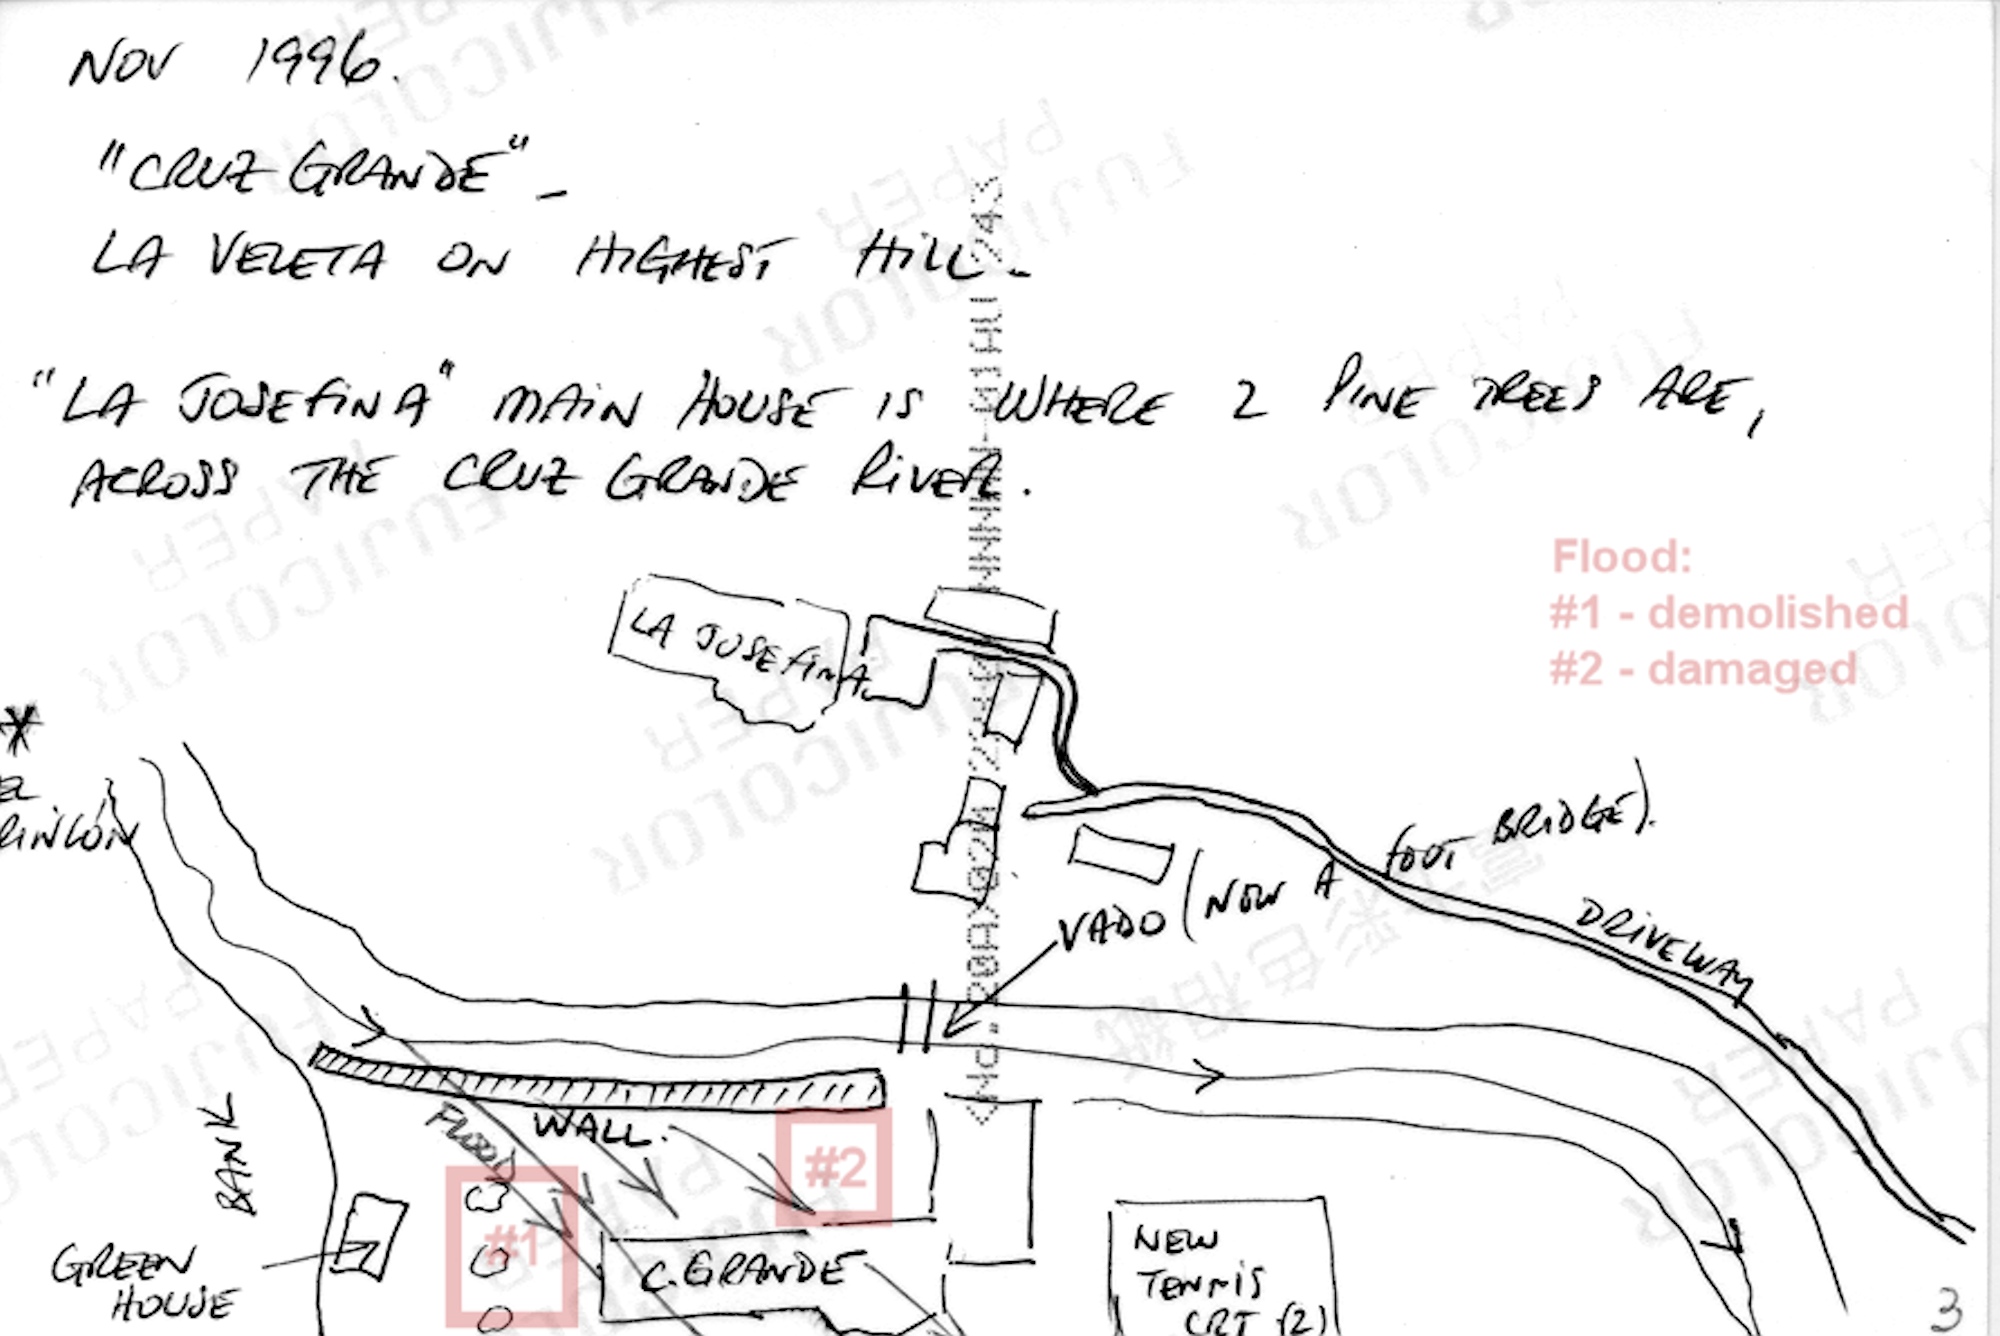 NOV 1996.
"CRUZ GRANDE" -
LA VELETA ON HIGHEST HILL -
"LA JOSEFINA" MAIN HOUSE IS WHERE 2 PINE TREES ARE,
ACROSS THE CRUZ GRANDE RIVER.
Flood:
#1 - demolished
#2 - damaged
LA JOSEFINA
*
EL
RINCÓN
VADO (NOW A FOOT BRIDGE).
DRIVEWAY
WALL.
FLOOD
BANK
#2
#1
GREEN
HOUSE
C. GRANDE
NEW
TENNIS
CRT (2)
3
FUJICOLOR
PAPER